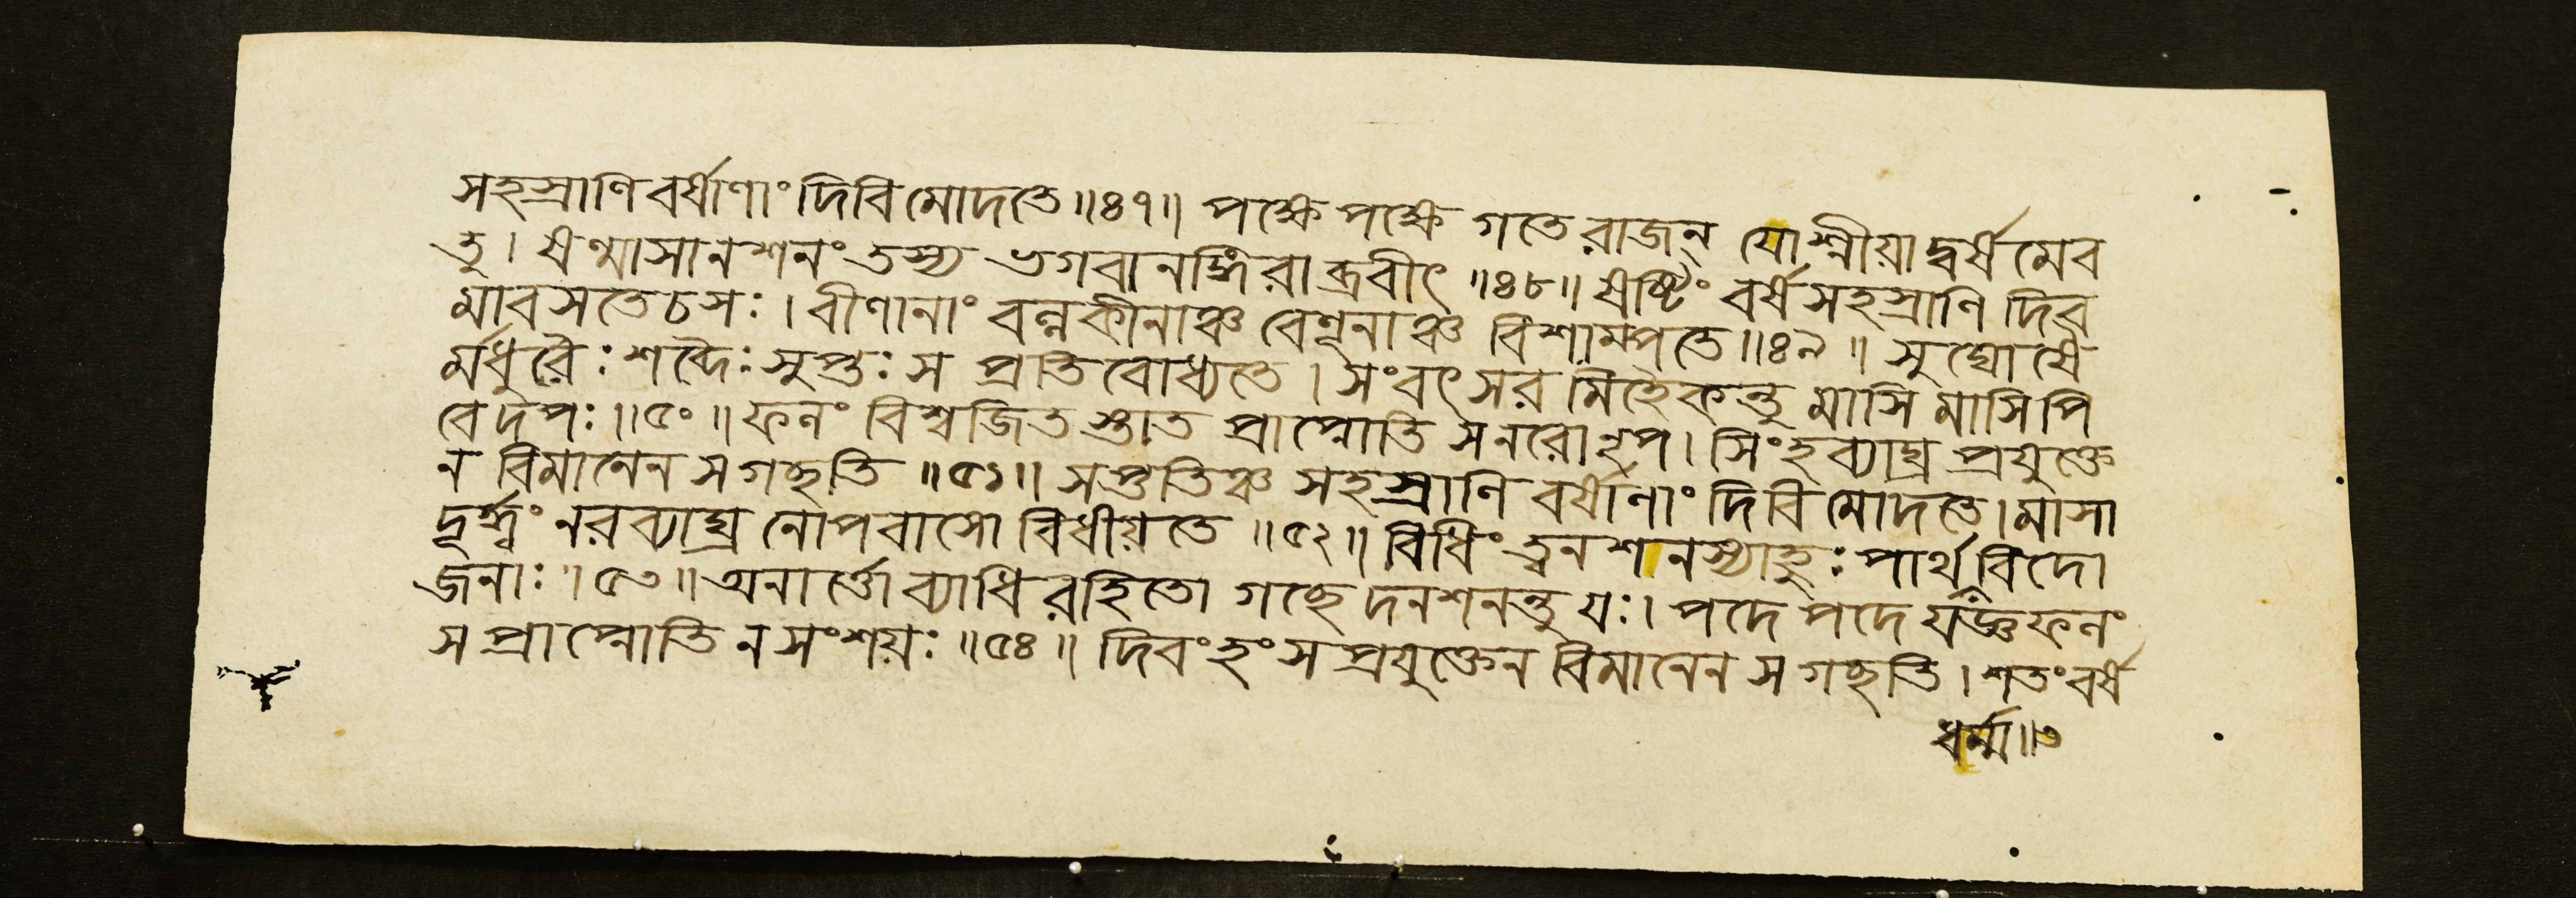 সহস্রাণি বর্ষাণাং দিবি মোদতে॥৪৭॥ পক্ষে পক্ষে গতে রাজন্ যোশ্নীয়াদ্বর্ষমেব
তু। ষণ্মাসানশনং তস্য ভগবানঙ্গিরাব্রবীৎ॥৪৮॥ ষষ্টিং বর্ষসহস্রাণি দিব
মাবসতে চ সঃ। বীণানাং বল্লকীনাঞ্চ বেণূনাঞ্চ বিশাম্পতে॥৪৯॥ সুঘোষৈ
র্মধুরৈঃ শব্দৈঃ সুপ্তঃ স প্রতিবোধ্যতে। সংবৎসরমিহৈকন্তু মাসি মাসি পি
বেদপঃ॥৫০॥ ফলং বিশ্বজিতস্তাত প্রাপ্নোতি স নরো নৃপ। সিংহব্যাঘ্রপ্রযুক্তে
ন বিমানেন স গচ্ছতি॥৫১॥ সপ্ততিঞ্চ সহস্রাণি বর্ষাণাং দিবি মোদতে। মাসা
দূর্দ্ধ্বং নরব্যাঘ্র নোপবাসো বিধীয়তে॥৫২॥ বিধিং ত্বনশনস্যাহুঃ পার্থ বিদো
জনাঃ॥৫৩॥ অনার্ত্তো ব্যাধিরহিতো গচ্ছেদনশনন্তু যঃ। পদে পদে যজ্ঞফলং
স প্রাপ্নোতি ন সংশয়ঃ॥৫৪॥ দিবং হংসপ্রযুক্তেন বিমানেন স গচ্ছতি। শতং বর্ষ
ধর্ম্ম॥৩